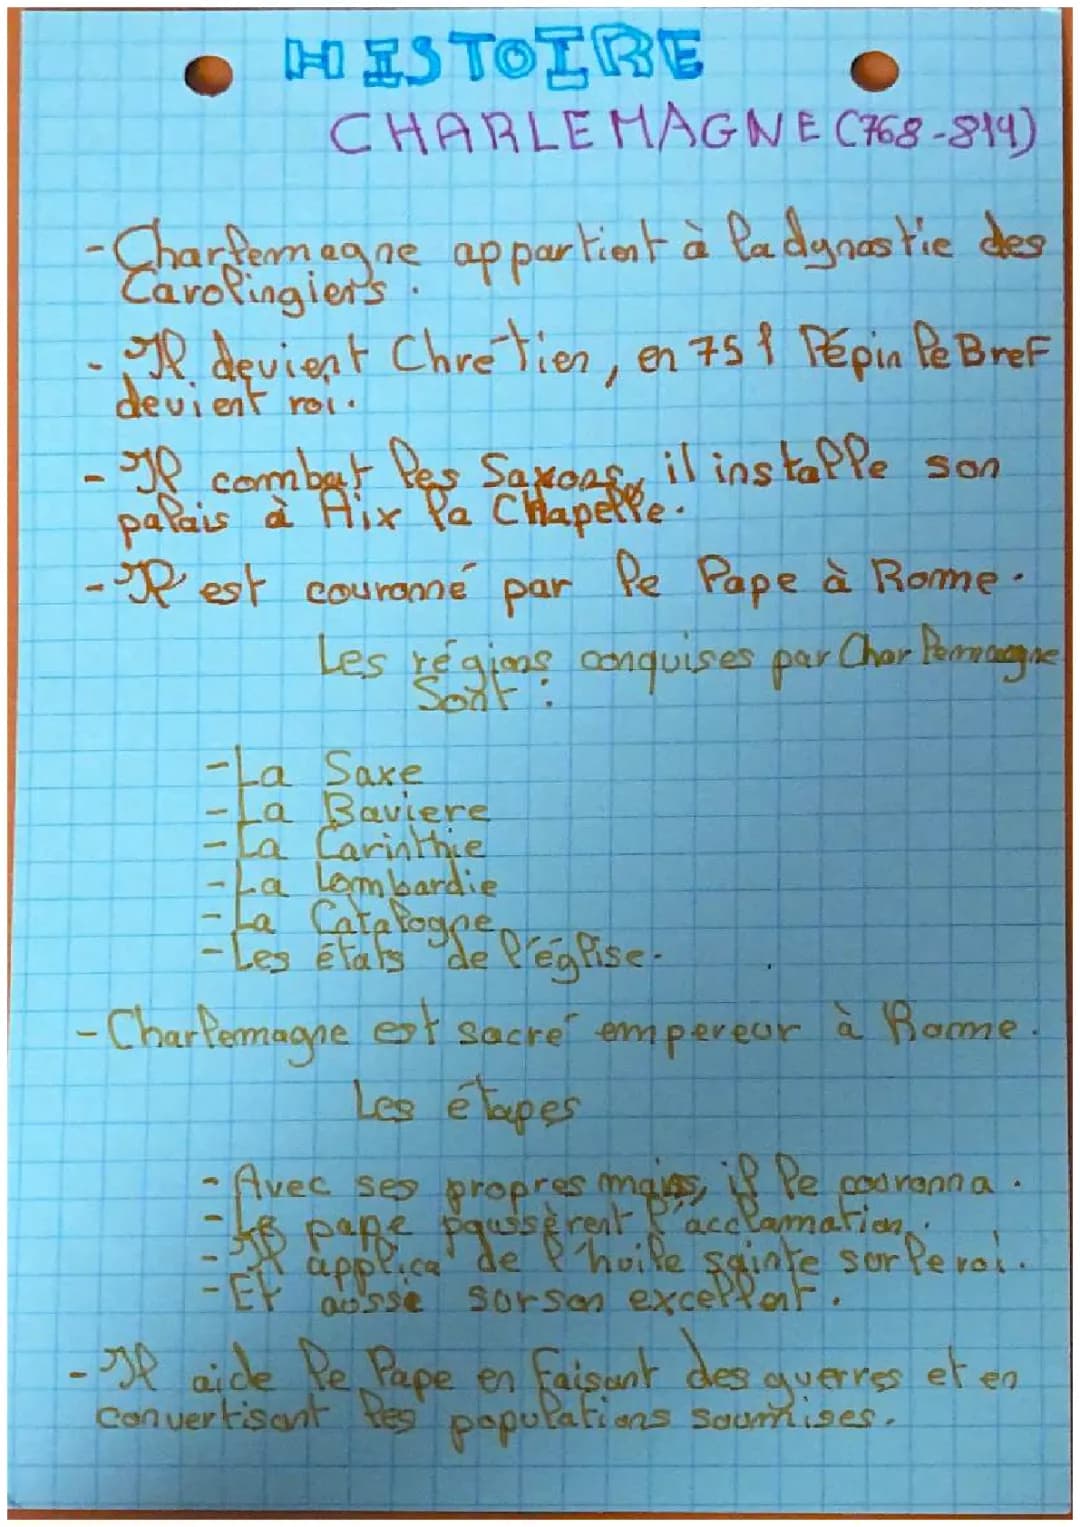 HISTOIRE
CHARLEMAGNE (768-814)
- Charlemagne appartient à la dynastie des
Carolingiens.
- Il devient Chrétien, en 751 Pépin le Bref
devient roi.
- Il combat les Saxons, il installe son
palais à Aix la Chapelle.
- Il est couronné par le Pape à Rome.
Les régions conquises par Charlemagne
Sont :
- La Saxe
- La Baviere
- La Carinthie
- La Lombardie
- La Catalogne
- Les états de l'église.
- Charlemagne est sacré empereur à Rome.
Les étapes
- Avec ses propres mains, il le couronna.
- Le pape poussèrent l'acclamation.
- Il applica de l'huile sainte sur le roi.
- Et aussi sur son excellent.
- Il aide le Pape en faisant des guerres et en
convertisant les populations soumises.